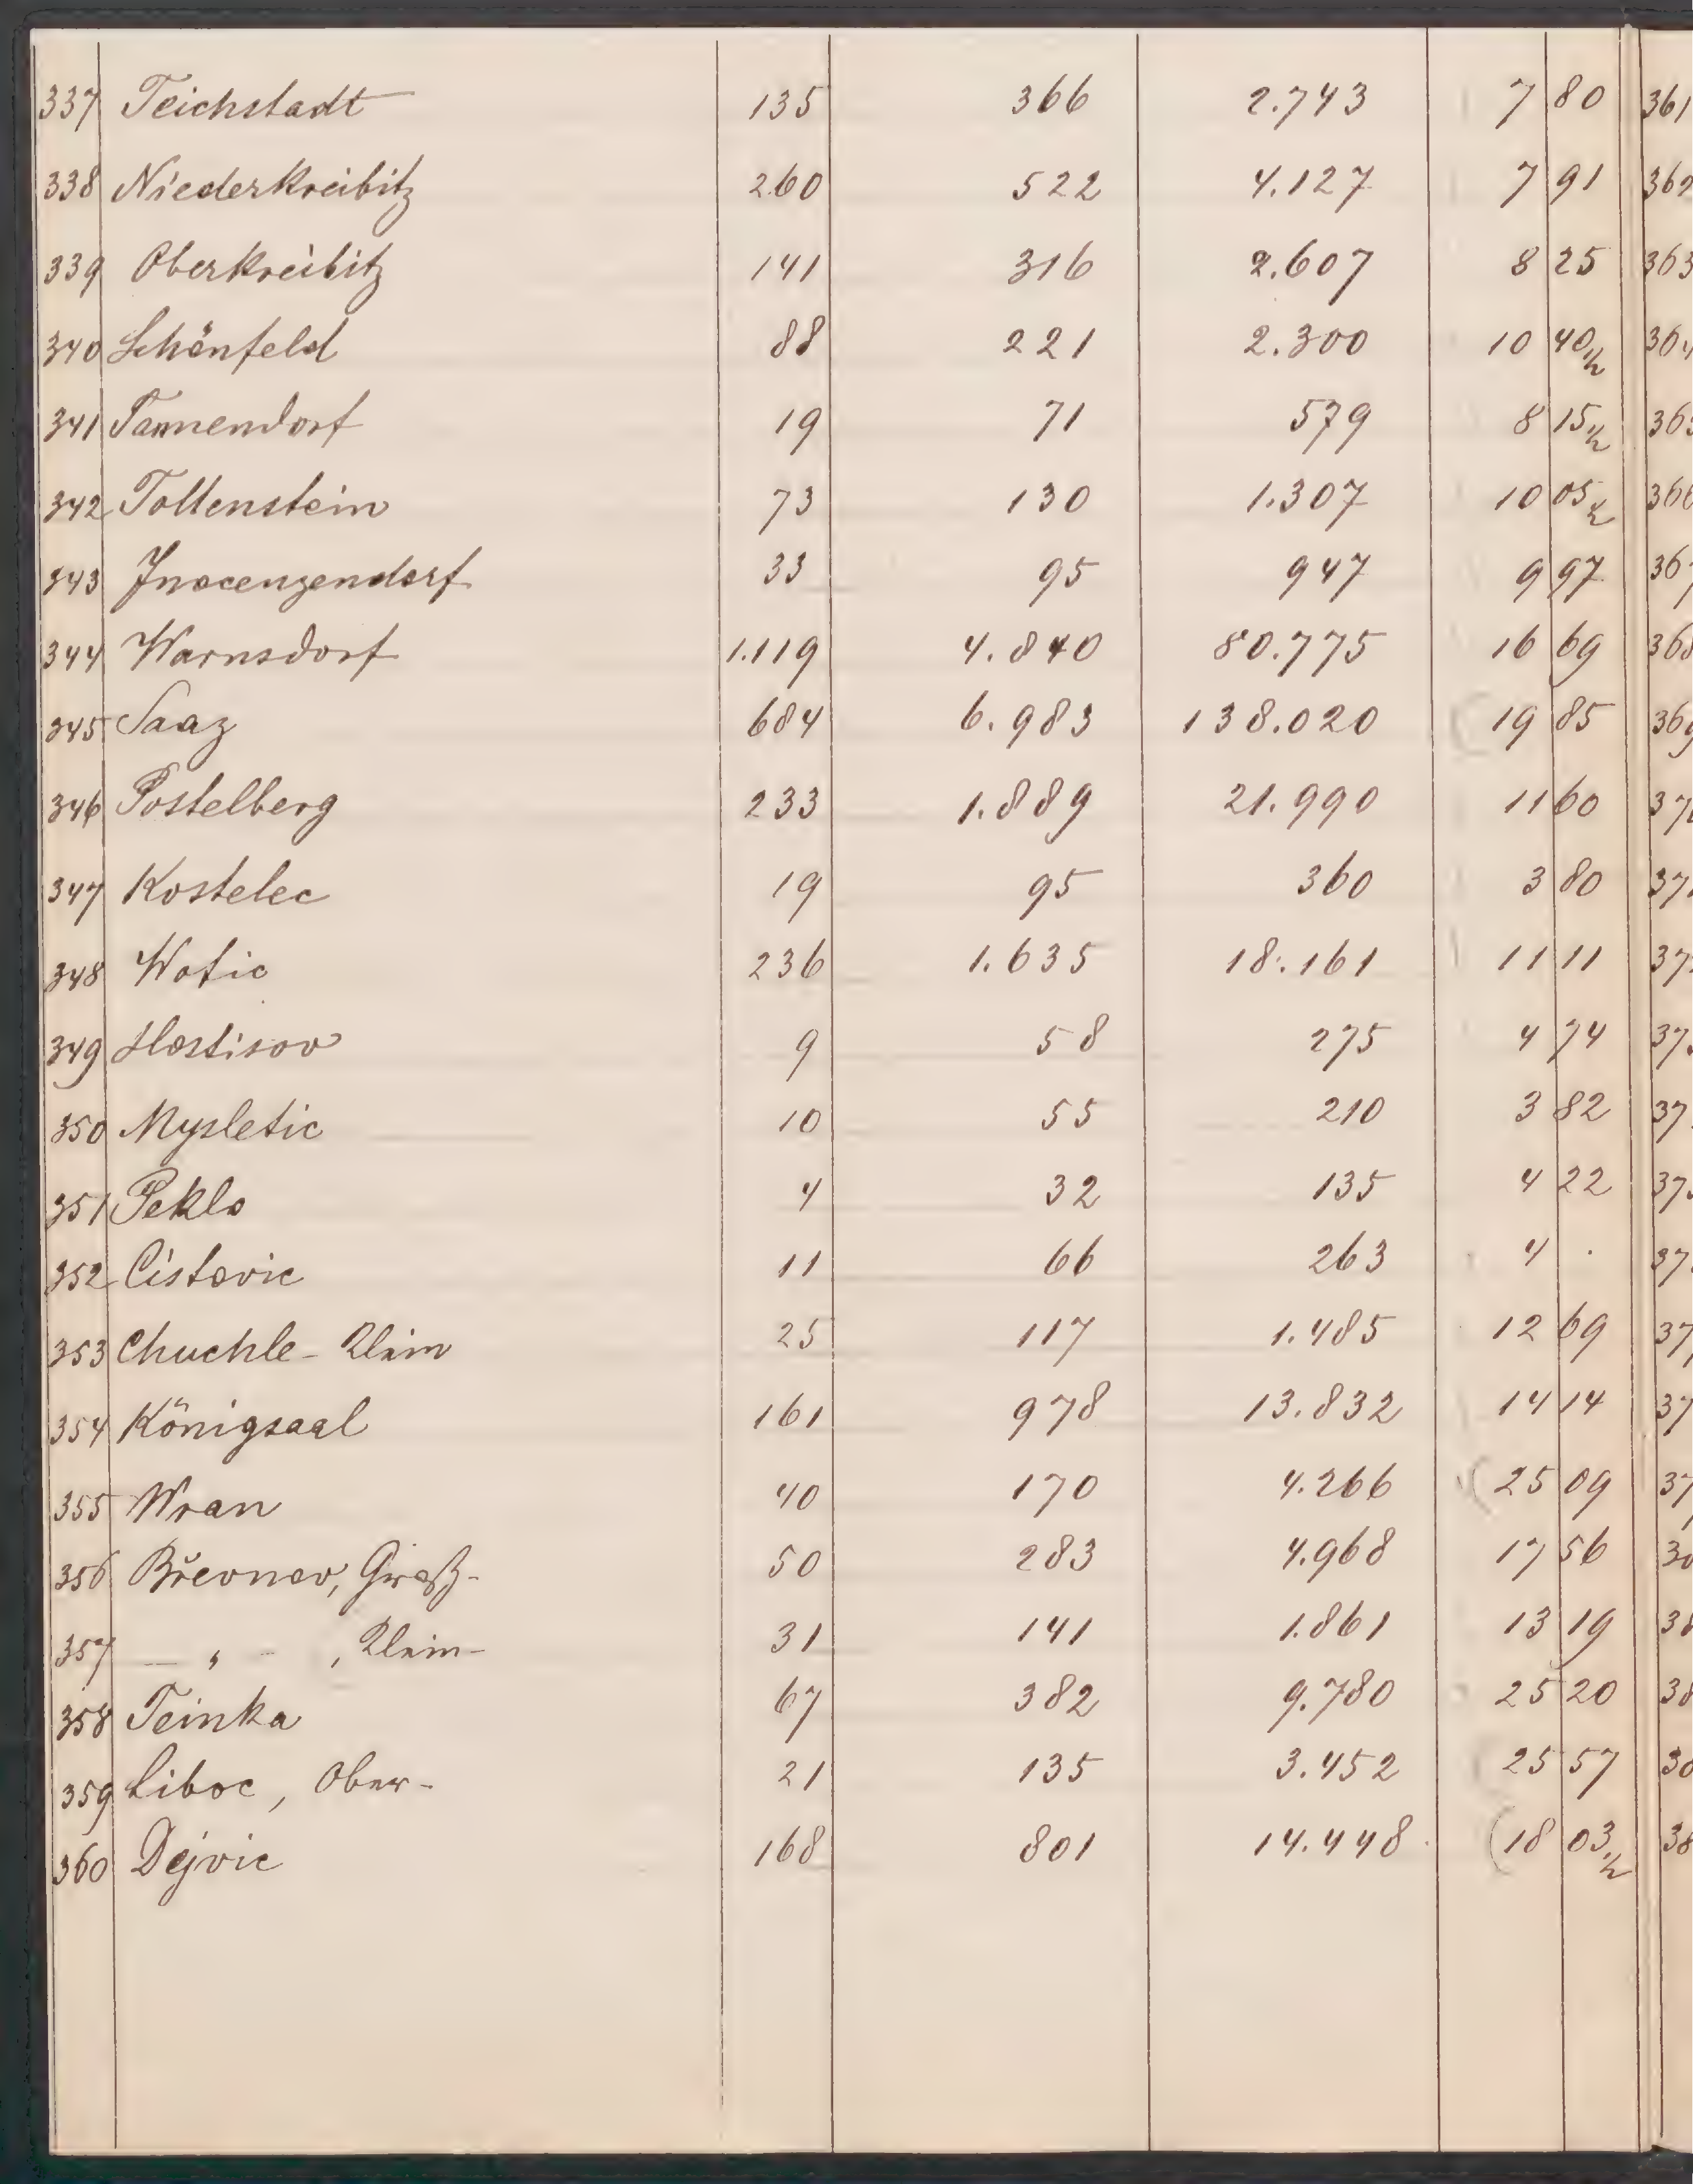 337 Teichstadt 135 366 2.743 7 80 361
338 Niederkreibitz 260 522 4.127 7 91 362
339 Oberkreibitz 141 316 2.607 8 25 363
340 Schönfeld 88 221 2.300 10 40½ 364
341 Tannendorf 19 71 579 8 15½ 365
342 Tollenstein 73 130 1.307 10 05½ 366
343 Inocenzendorf 33 95 947 9 97 367
344 Warnsdorf 1.119 4.840 80.775 16 69 368
345 Saaz 684 6.983 138.020 19 85 369
346 Postelberg 233 1.889 21.990 11 60 37
347 Kostelec 19 95 360 3 80 37
348 Wotic 236 1.635 18.161 11 11 37
349 Hostisov 9 58 275 4 74 37
350 Mysletic 10 55 210 3 82 37
351 Peklo 4 32 135 4 22 37
352 Cistovic 11 66 263 4 · 37
353 Chuchle - Klein 25 117 1.485 12 69 37
354 Königsaal 161 978 13.832 14 14 37
355 Wran 40 170 4.266 25 09 37
356 Břevnov, Groß- 50 283 4.968 17 56 38
357 — „ - , Klein- 31 141 1.861 13 19 38
358 Teinka 67 382 9.780 25 20 38
359 Liboc, Ober- 21 135 3.452 25 57 38
360 Dejvic 168 801 14.448 18 03½ 38